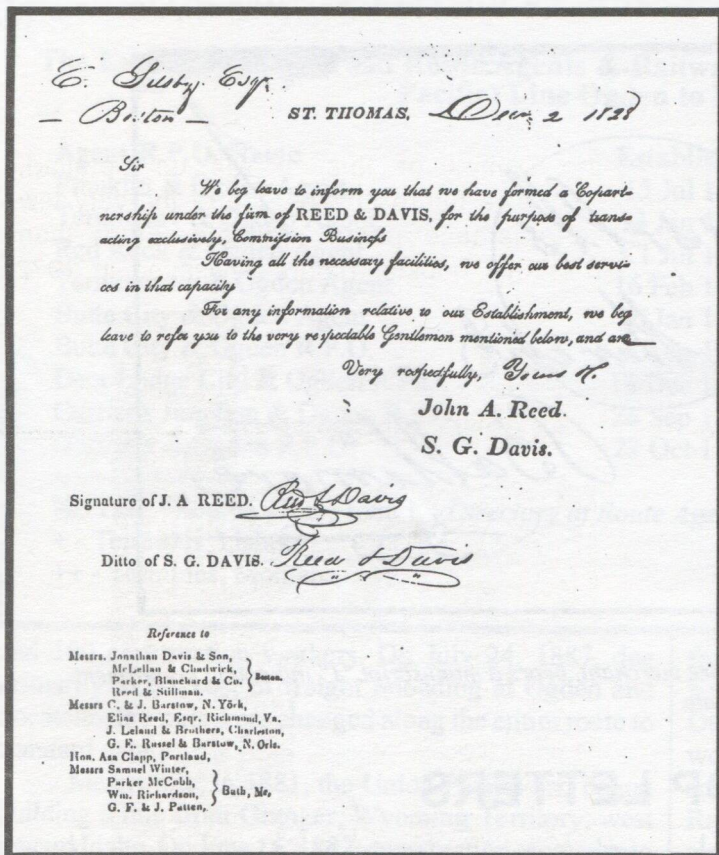 E. Silsby Esqr
— Boston —
ST. THOMAS, Decr 2 1828
Sir
We beg leave to inform you that we have formed a Copart-
nership under the firm of REED & DAVIS, for the purpose of trans-
acting exclusively, Commission Busineſs
Having all the necessary facilities, we offer our best servi-
ces in that capacity
For any information relative to our Establishment, we beg
leave to refer you to the very respectable Gentlemen mentioned below, and are
Very respectfully, Yours &c.
John A. Reed.
S. G. Davis.
Signature of J. A REED. Reed & Davis
Ditto of S. G. DAVIS. Reed & Davis
Reference to
Messrs. Jonathan Davis & Son,
McLellan & Chadwick,
Parker, Blanchard & Co.
Reed & Stillman.
Boston.
Messrs C. & J. Barstow, N. York,
Elias Reed, Esqr. Richmond, Va.
J. Leland & Brothers, Charleston,
G. E. Russel & Barstow, N. Orls.
Hon. Asa Clapp, Portland,
Messrs Samuel Winter,
Parker McCobb,
Wm. Richardson,
G. F. & J. Patten,
Bath, Me,